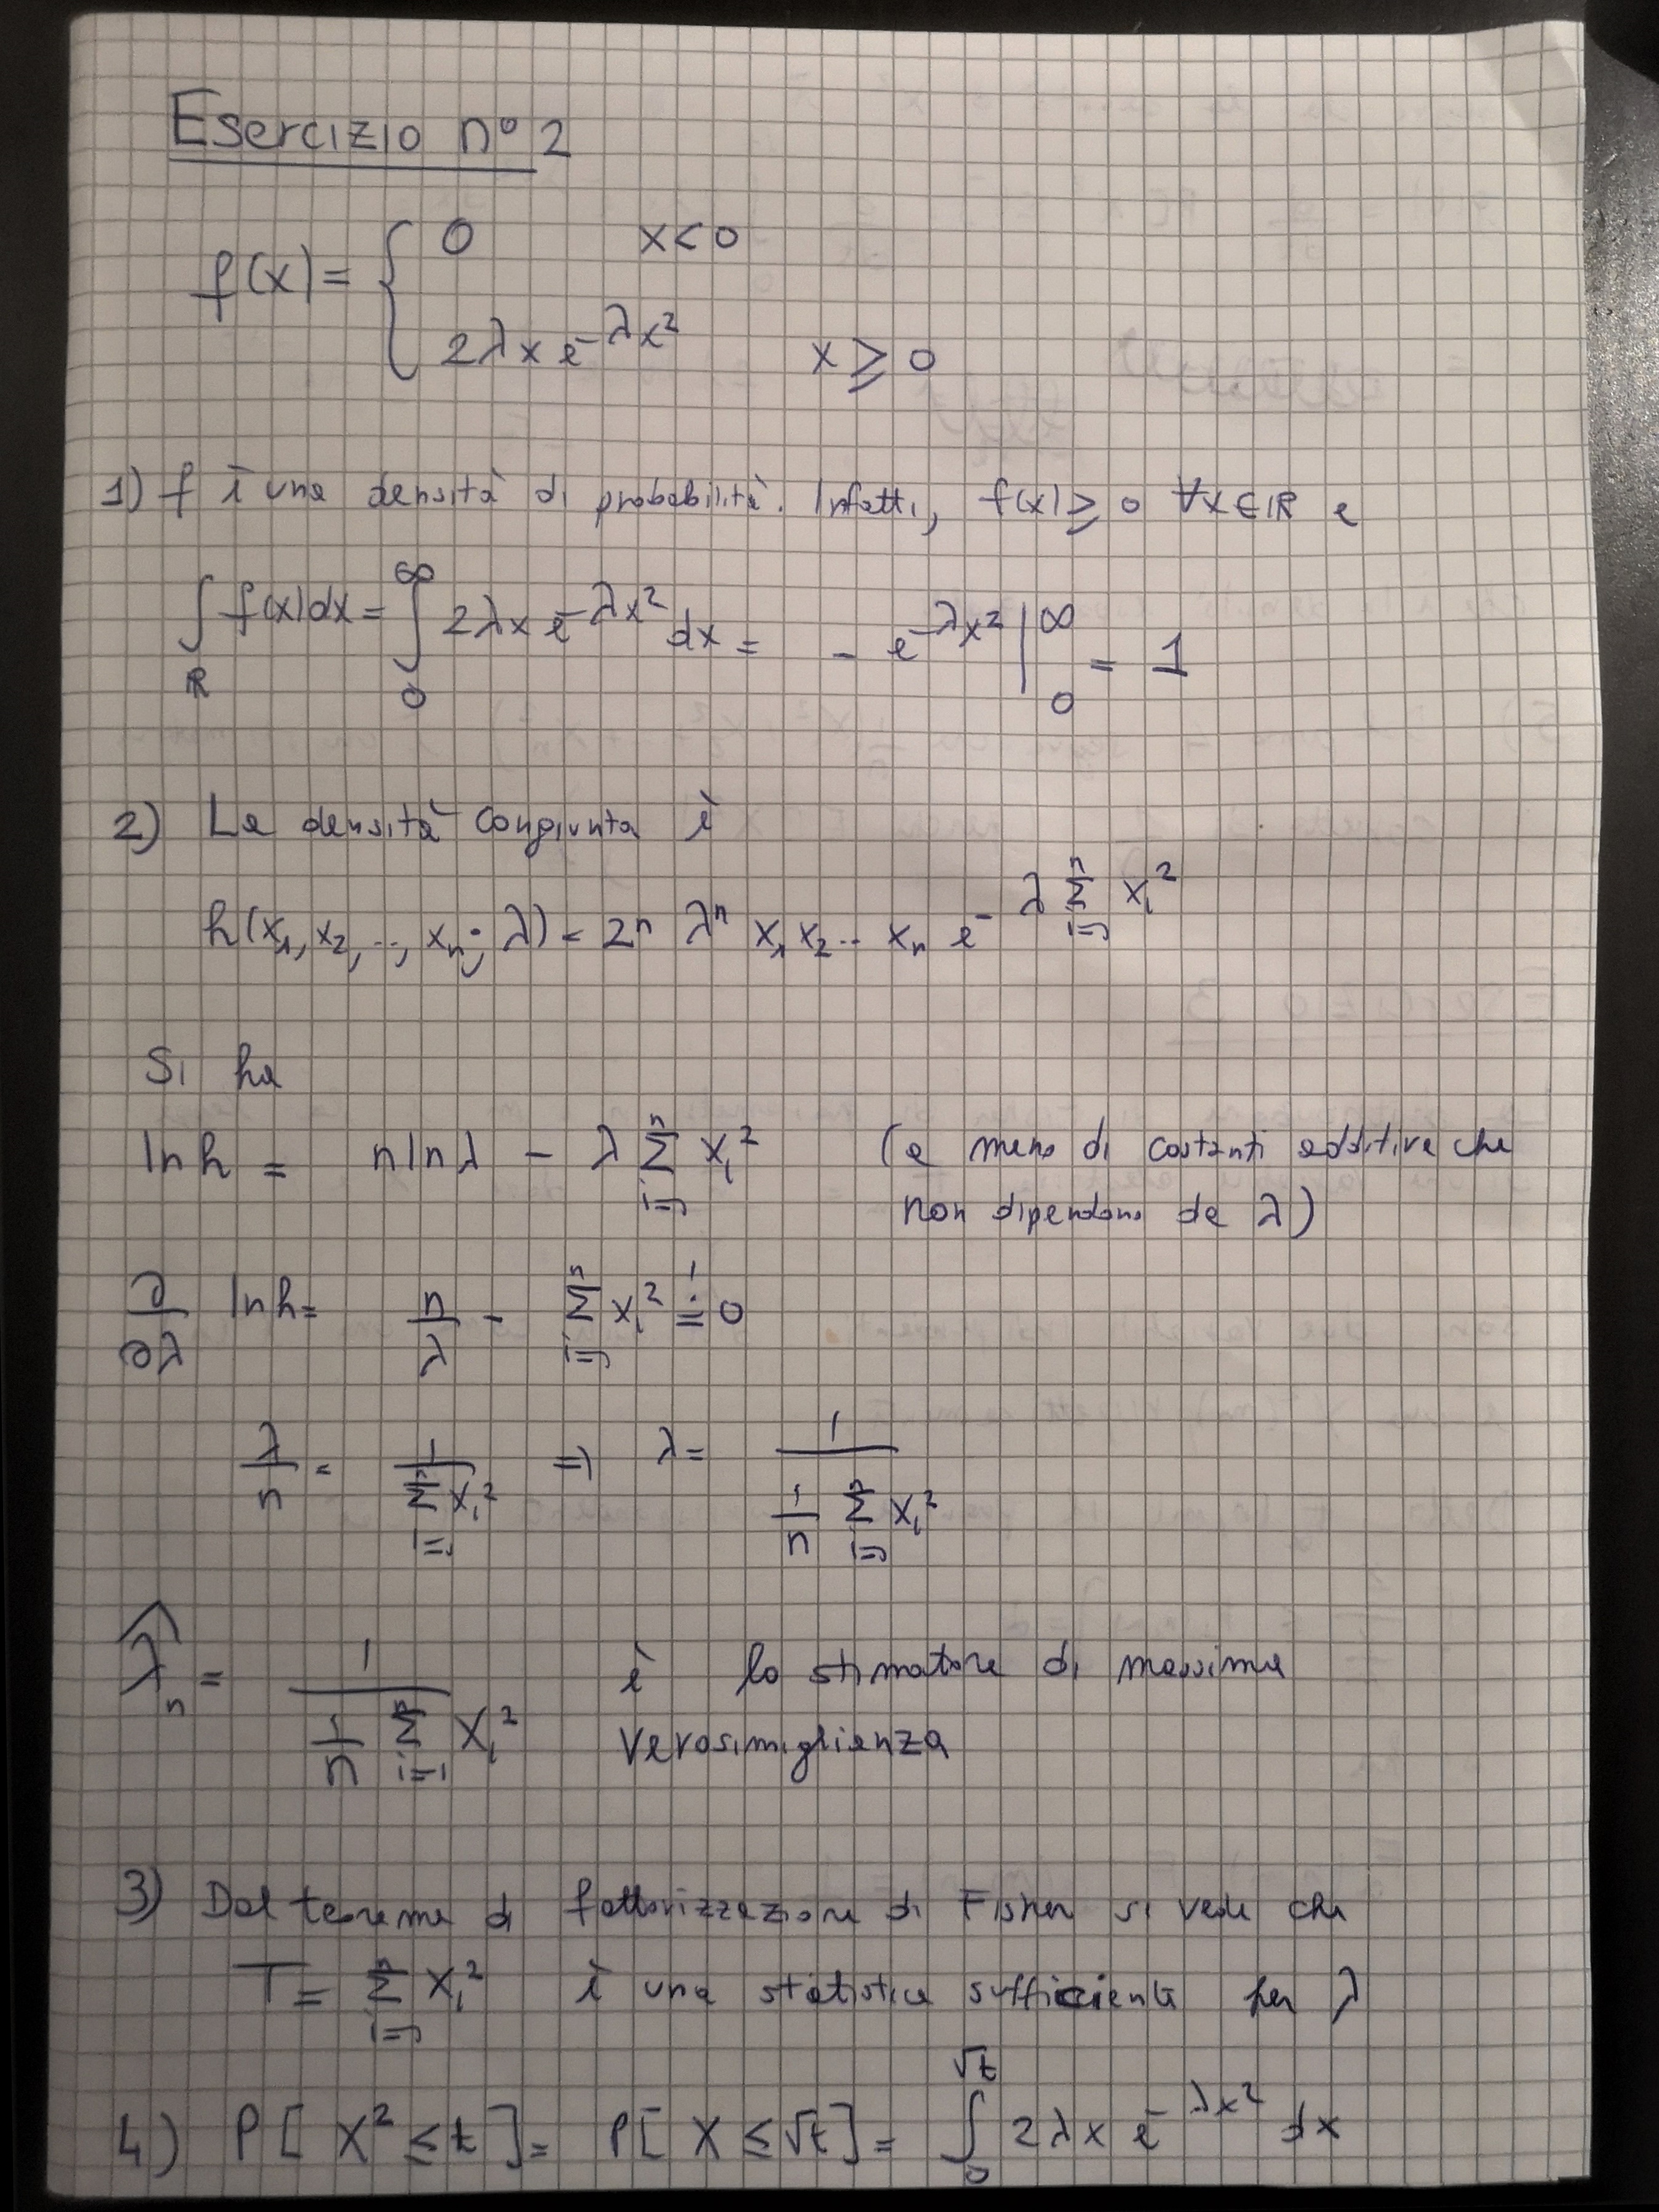 Esercizio n° 2
f(x) = { 0 x < 0
2λx e^{-λx²} x ⩾ 0
1) f è una densità di probabilità. Infatti, f(x) ⩾ 0 ∀x∈ℝ e
∫_ℝ f(x)dx = ∫_0^∞ 2λx e^{-λx²} dx = - e^{-λx²} |_0^∞ = 1
2) La densità congiunta è
h(x₁, x₂, .., xₙ; λ) = 2ⁿ λⁿ x₁ x₂ .. xₙ e^{-λ Σ_{i=1}^n xᵢ²}
Si ha
ln h = n ln λ - λ Σ_{i=1}^n xᵢ² (a meno di costanti additive che
non dipendono da λ)
∂/∂λ ln h = n/λ - Σ_{i=1}^n xᵢ² ≟ 0
λ/n = 1/(Σ_{i=1}^n xᵢ²) ⇒ λ = 1/((1/n) Σ_{i=1}^n xᵢ²)
λ̂ₙ = 1/((1/n) Σ_{i=1}^n Xᵢ²) è lo stimatore di massima
verosimiglianza
3) Dal teorema di fattorizzazione di Fisher si vede che
T = Σ_{i=1}^n Xᵢ² è una statistica sufficiente per λ
4) P[X² ≤ t] = P[X ≤ √t] = ∫_0^{√t} 2λx e^{-λx²} dx